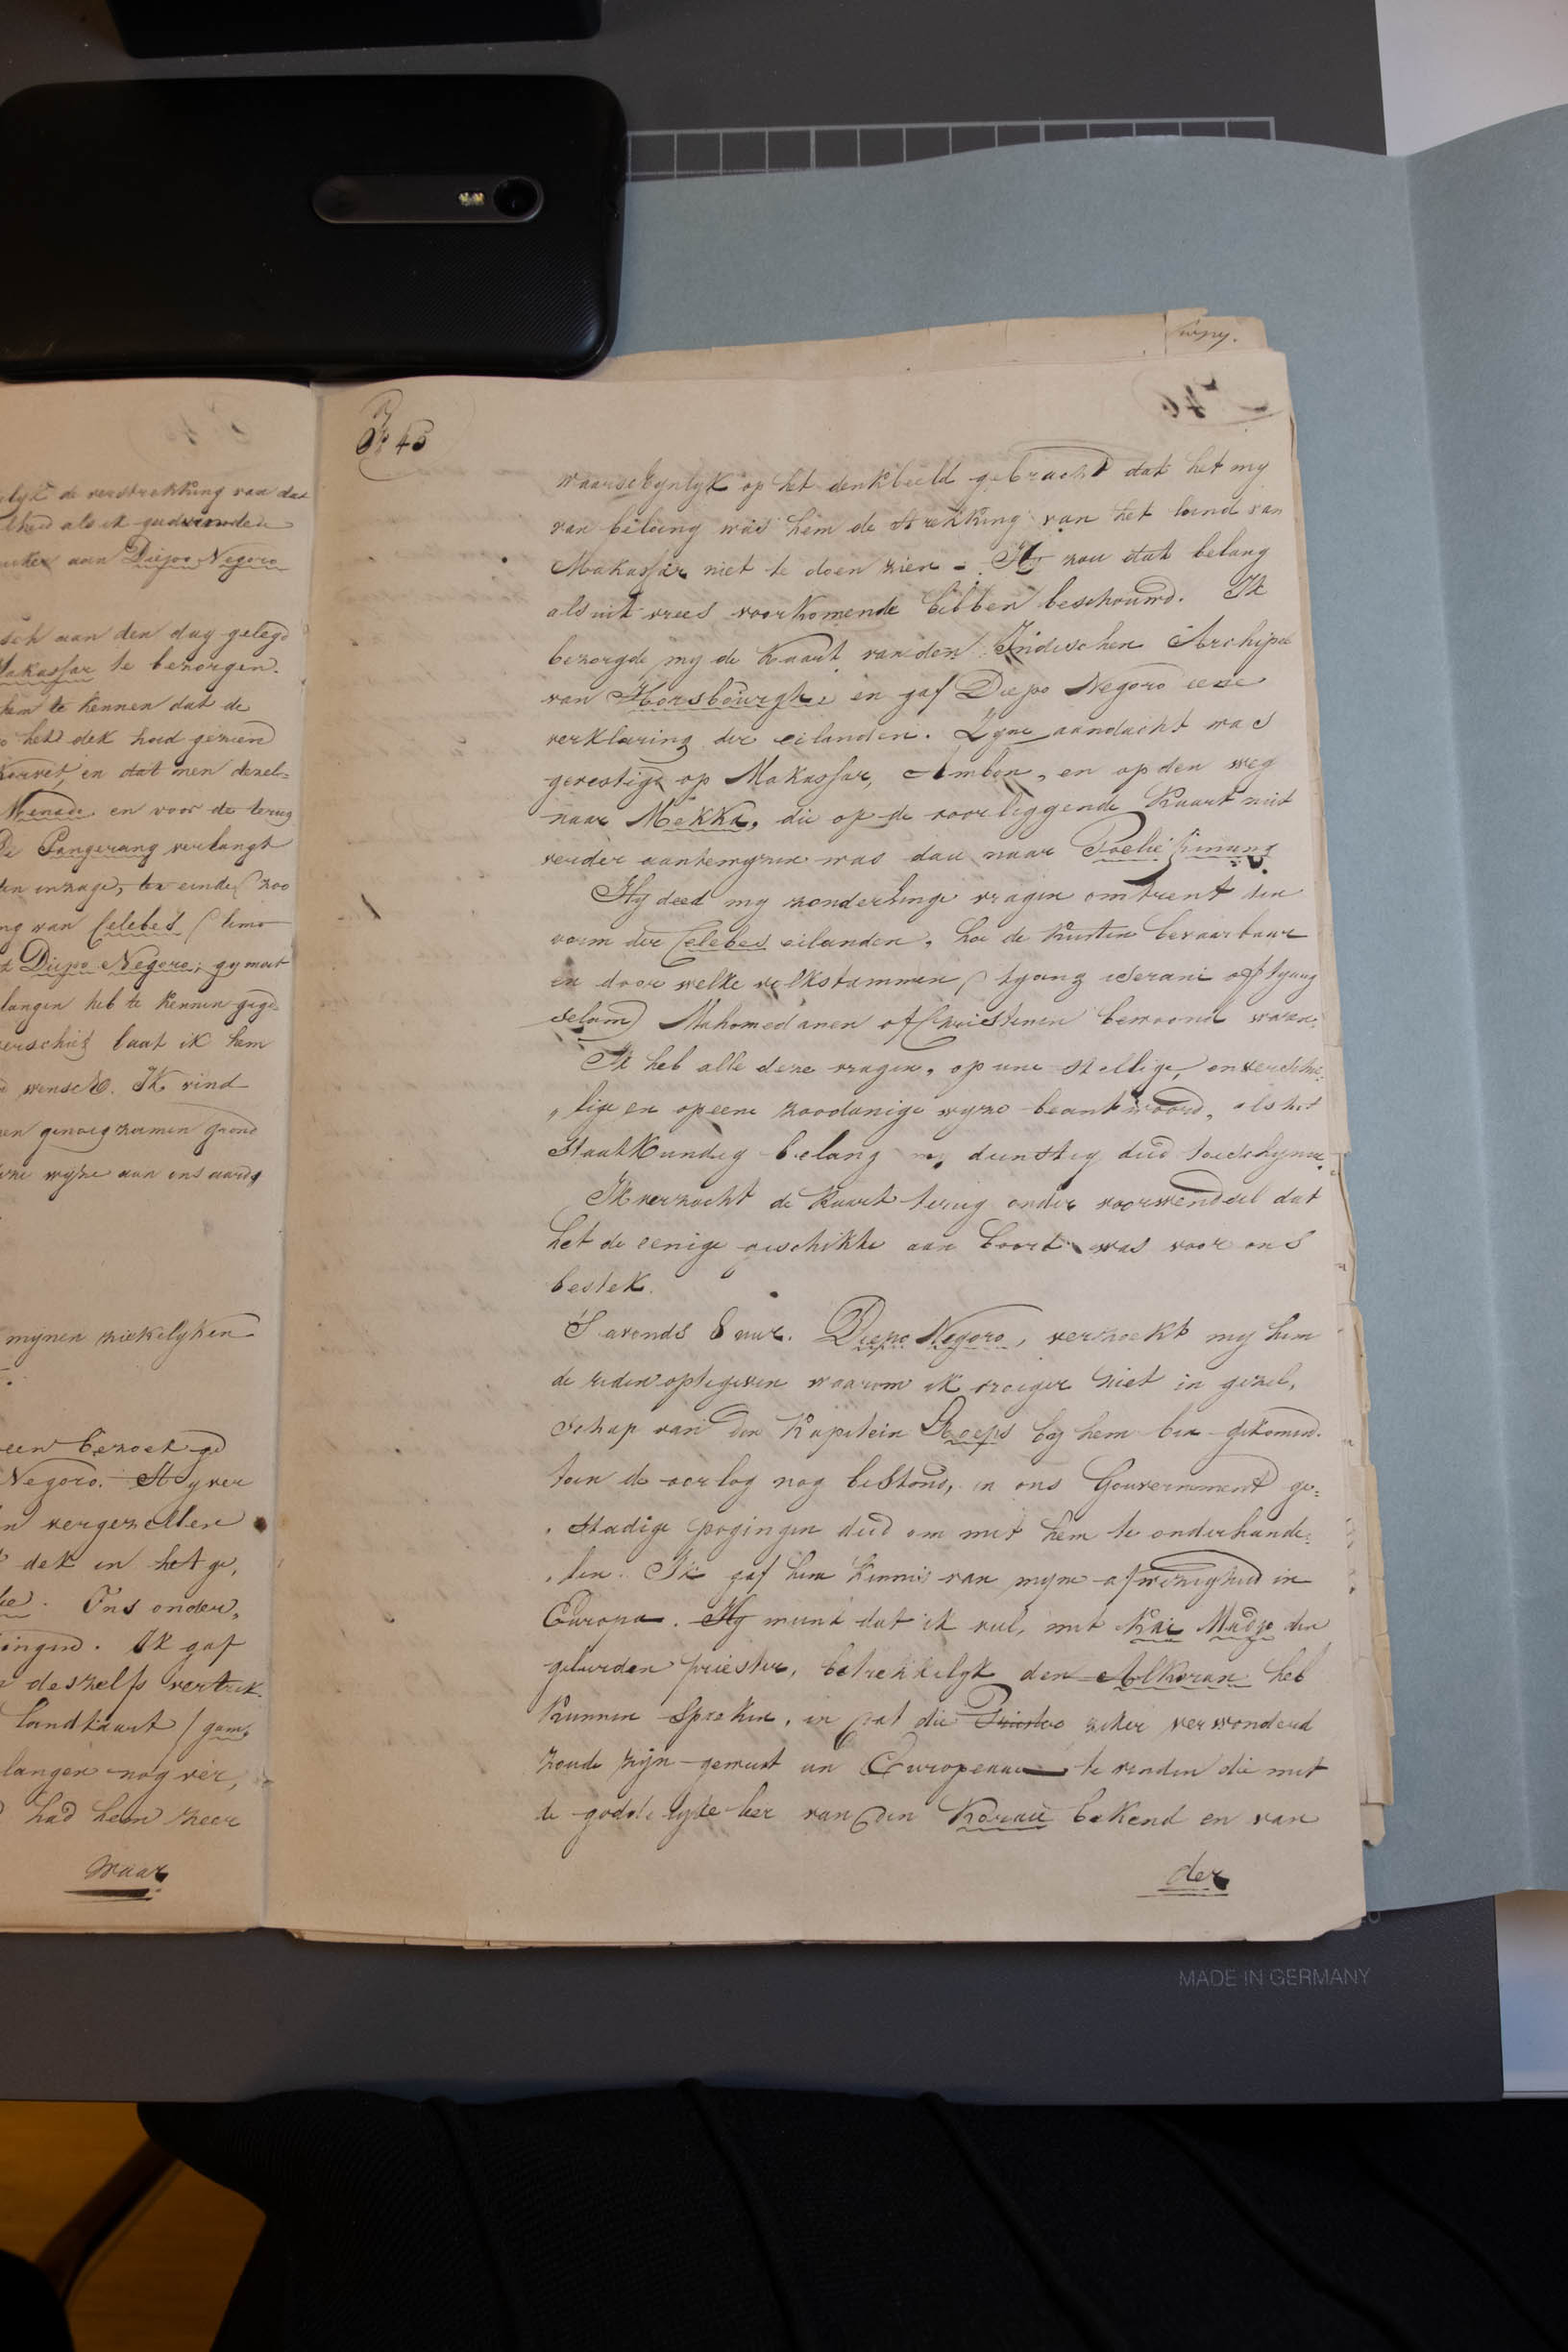 elyk de verstrekking van dat
als ik
aan Diepo Negoro
sch aan den dag gelegd
Makassar te bezorgen.
hem te kennen dat de
het dek had gezien
Korvet, en dat men dezel=
Menado en voor de terug
De Pangerang verlangt
ten inzage, ten einde zoo
ng van Celebes
t Diepo Negoro; gy moet
langen heb te kennen gege=
verschiet laat ik hem
wensch. Ik vind
en genoegzamen grond
wyze aan ons aardig
mynen ziekelyken
een bezoek ge
Negoro. Hy ver
n vergezellen
dek in het ge,
Ons onder,
ingen. Ik gaf
deszelfs vertrek
landkaart / gam=
langen nog ver,
had hem zeer
waar
45
waarschynlyk op het denkbeeld gebracht dat het my
van belang was hem de strekking van het land van
Makassar niet te doen zien -. Hy zou dat belang
als uit vrees voorkomende hebben beschouwd. Ik
bezorgde my de Kaart van den Indischen Archipel
van Horsbourghe en gaf Diepo Negoro eene
verklaring der eilanden. Zyne aandacht was
gevestigd op Makassar, Ambon, en op den weg
naar Mekka, die op de voorliggende Kaart niet
verder aantewyzen was dan naar Poelie Pinang
Hy deed my zonderlinge vragen omtrent den
vorm der Celebes eilanden, hoe de Kusten bevaarbaar
en door welke volkstammen ( tyang serani of tyang
selam) Mahomedanen of Christenen bewoond waren.
Ik heb alle deze vragen, op eene stellige, onverschil=
lige en op eene zoodanige wyze beantwoord, als het
Staatkundig belang my dienstig deed toeschynen.
Ik verzocht de Kaart terug onder voorwendsel dat
het de eenige geschikte aan boord was voor ons
bestek.
'S avonds 8 uur. Diepo Negoro, verzoekt my hem
de reden optegeven waarom ik vroeger niet in gezel,
schap van den Kapitein Roeps by hem ben gekomen.
toen de oorlog nog bestond, en ons Gouvernement ge=
stadige pogingen deed om met hem te onderhande=
len. Ik gaf hem kennis van myne afwezigheid in
Europa. Hy meent dat ik veel, met Kai Madjo den
geleerden priester, betrekkelyk den Alkoran heb
kunnen spreken, en dat die Priester zeker verwonderd
zoude zijn geweest een Europeaan te vinden die met
de goddelyke leer van den Koran bekend en van
der
MADE IN GERMANY